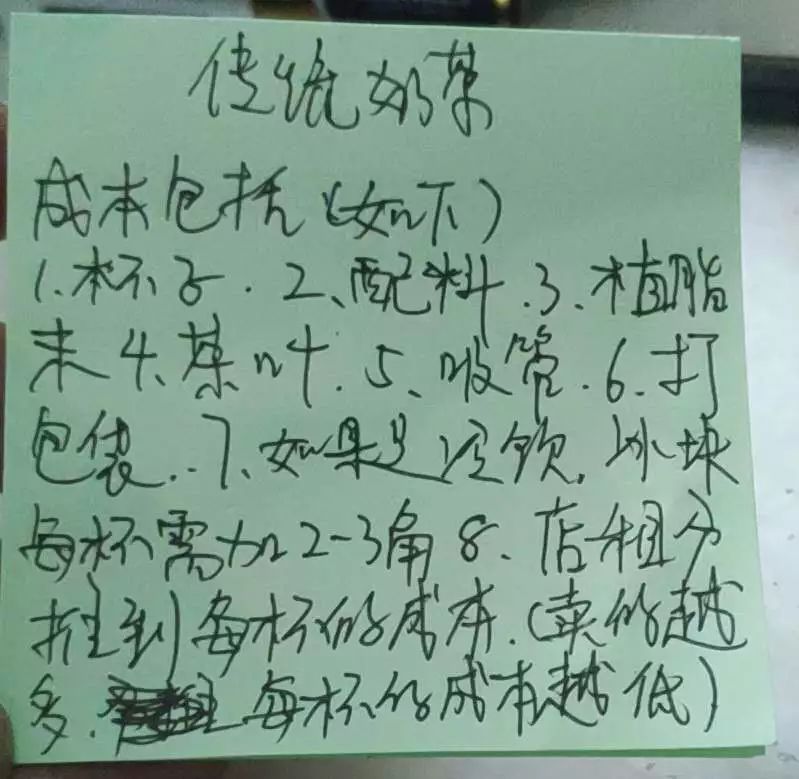 传统奶茶
成本包括(如下)
1.杯子.2、配料.3、植脂
末4、茶叶.5、吸管.6、打
包袋..7、如果是冷饮,冰块
每杯需加2-3角8、店租分
摊到每杯的成本.(卖的越
多.每杯的成本越低)